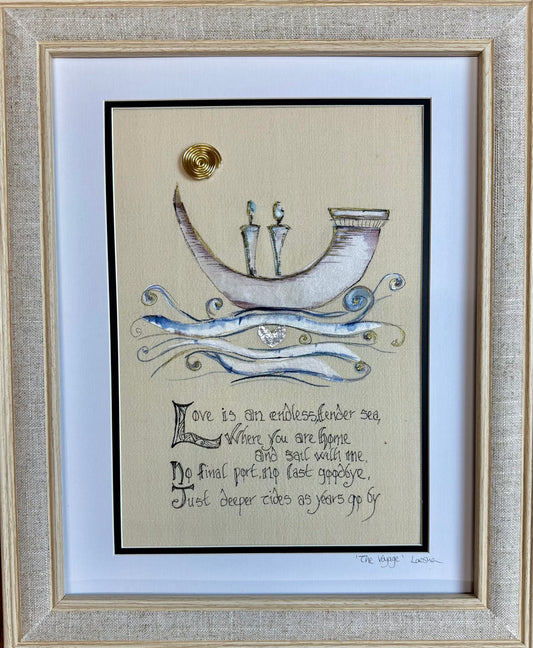 Love is an endless, tender sea,
Where you are home
and sail with me.
No final port, no last goodbye,
Just deeper tides as years go by
'The Voyage'